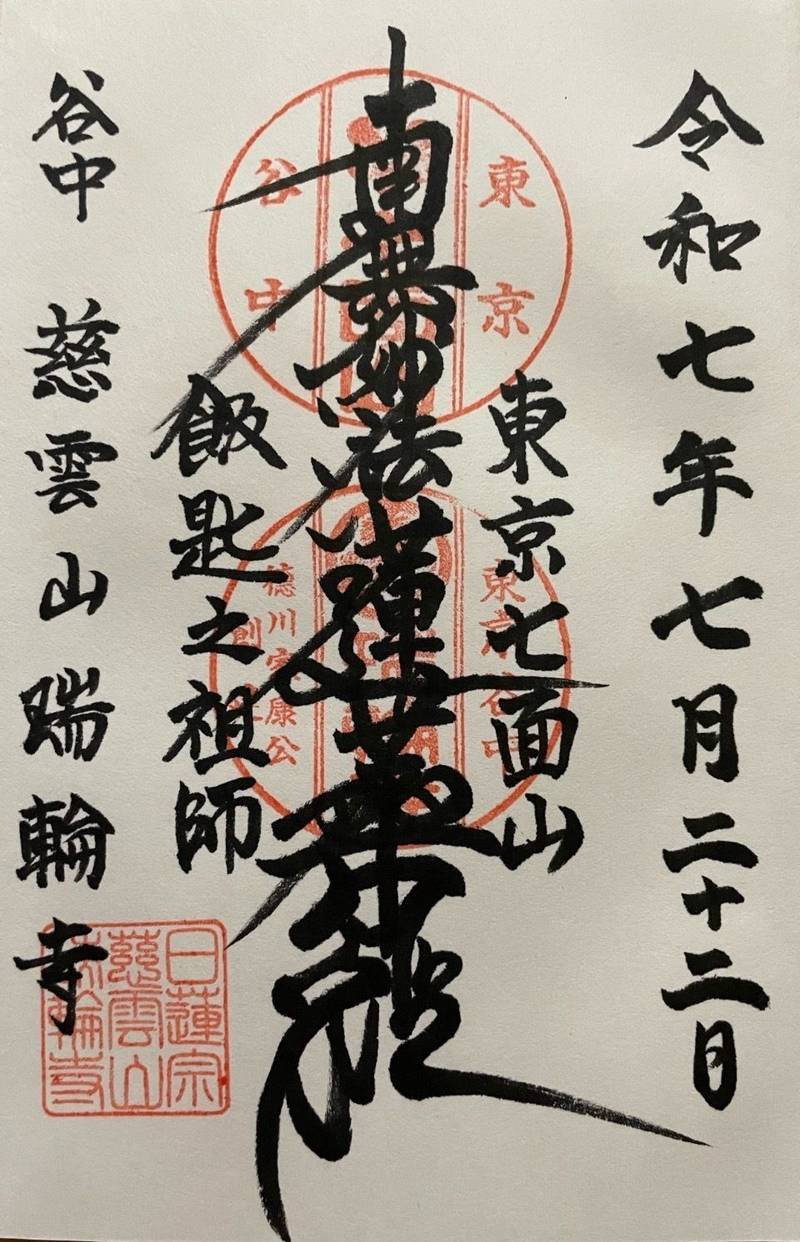 令和七年七月二十二日
東京七面山
南無妙法蓮華経
飯匙之祖師
谷中 慈雲山瑞輪寺
東京
谷中
東京谷中
徳川家康公
創建
日蓮宗
慈雲山
瑞輪寺